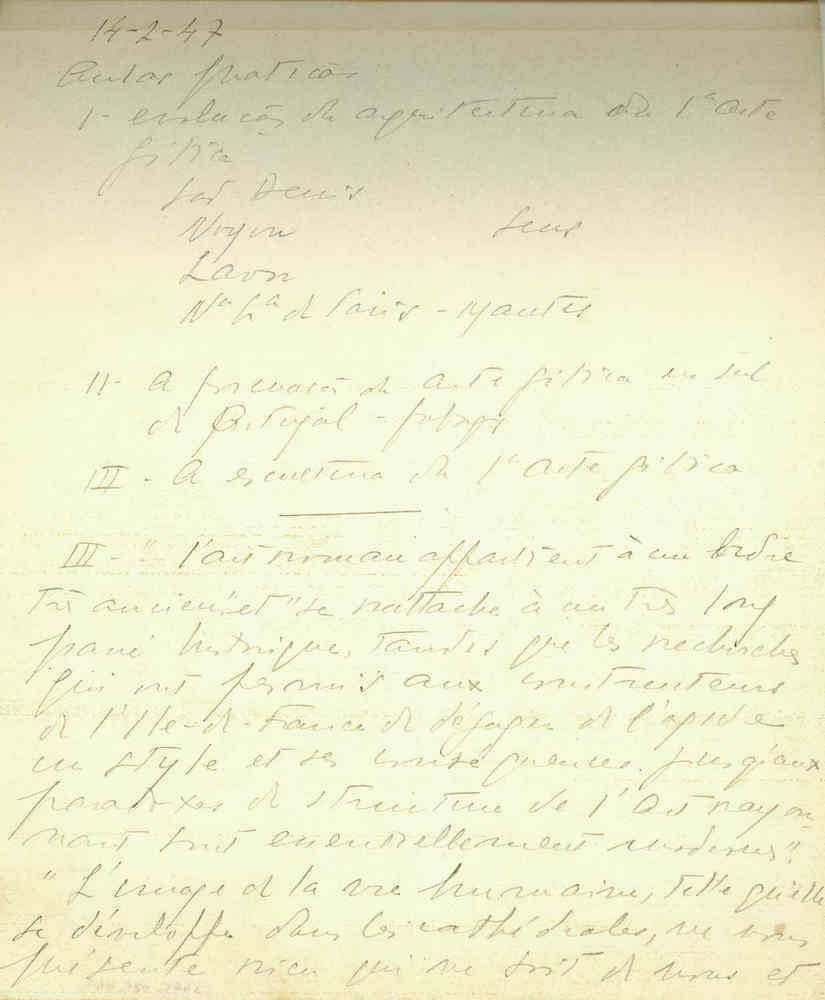 14-2-47
Aulas praticas
I - evolução da arquitectura da 1ª arte
gótica
São Denis
Noyon Sens
Laon
Nª Sª de Paris - Mantes
II - A formação da arte gótica no sul
de Portugal -
III - A escultura da 1ª arte gótica
III - " l'art roman appartient à un ordre
très ancien" et "se rattache à un très long
passé historique, tandis que les recherches
qui ont permis aux constructeurs
de l'Ile-de-France de dégager de l'ogive
un style et ses conséquences jusqu'aux
paradoxes de structure de l'Art rayon-
nant sont essentiellement modernes".
" L'image de la vie humaine, telle qu'elle
se développe dans les cathédrales, ne nous
présente rien qui ne soit de nous et